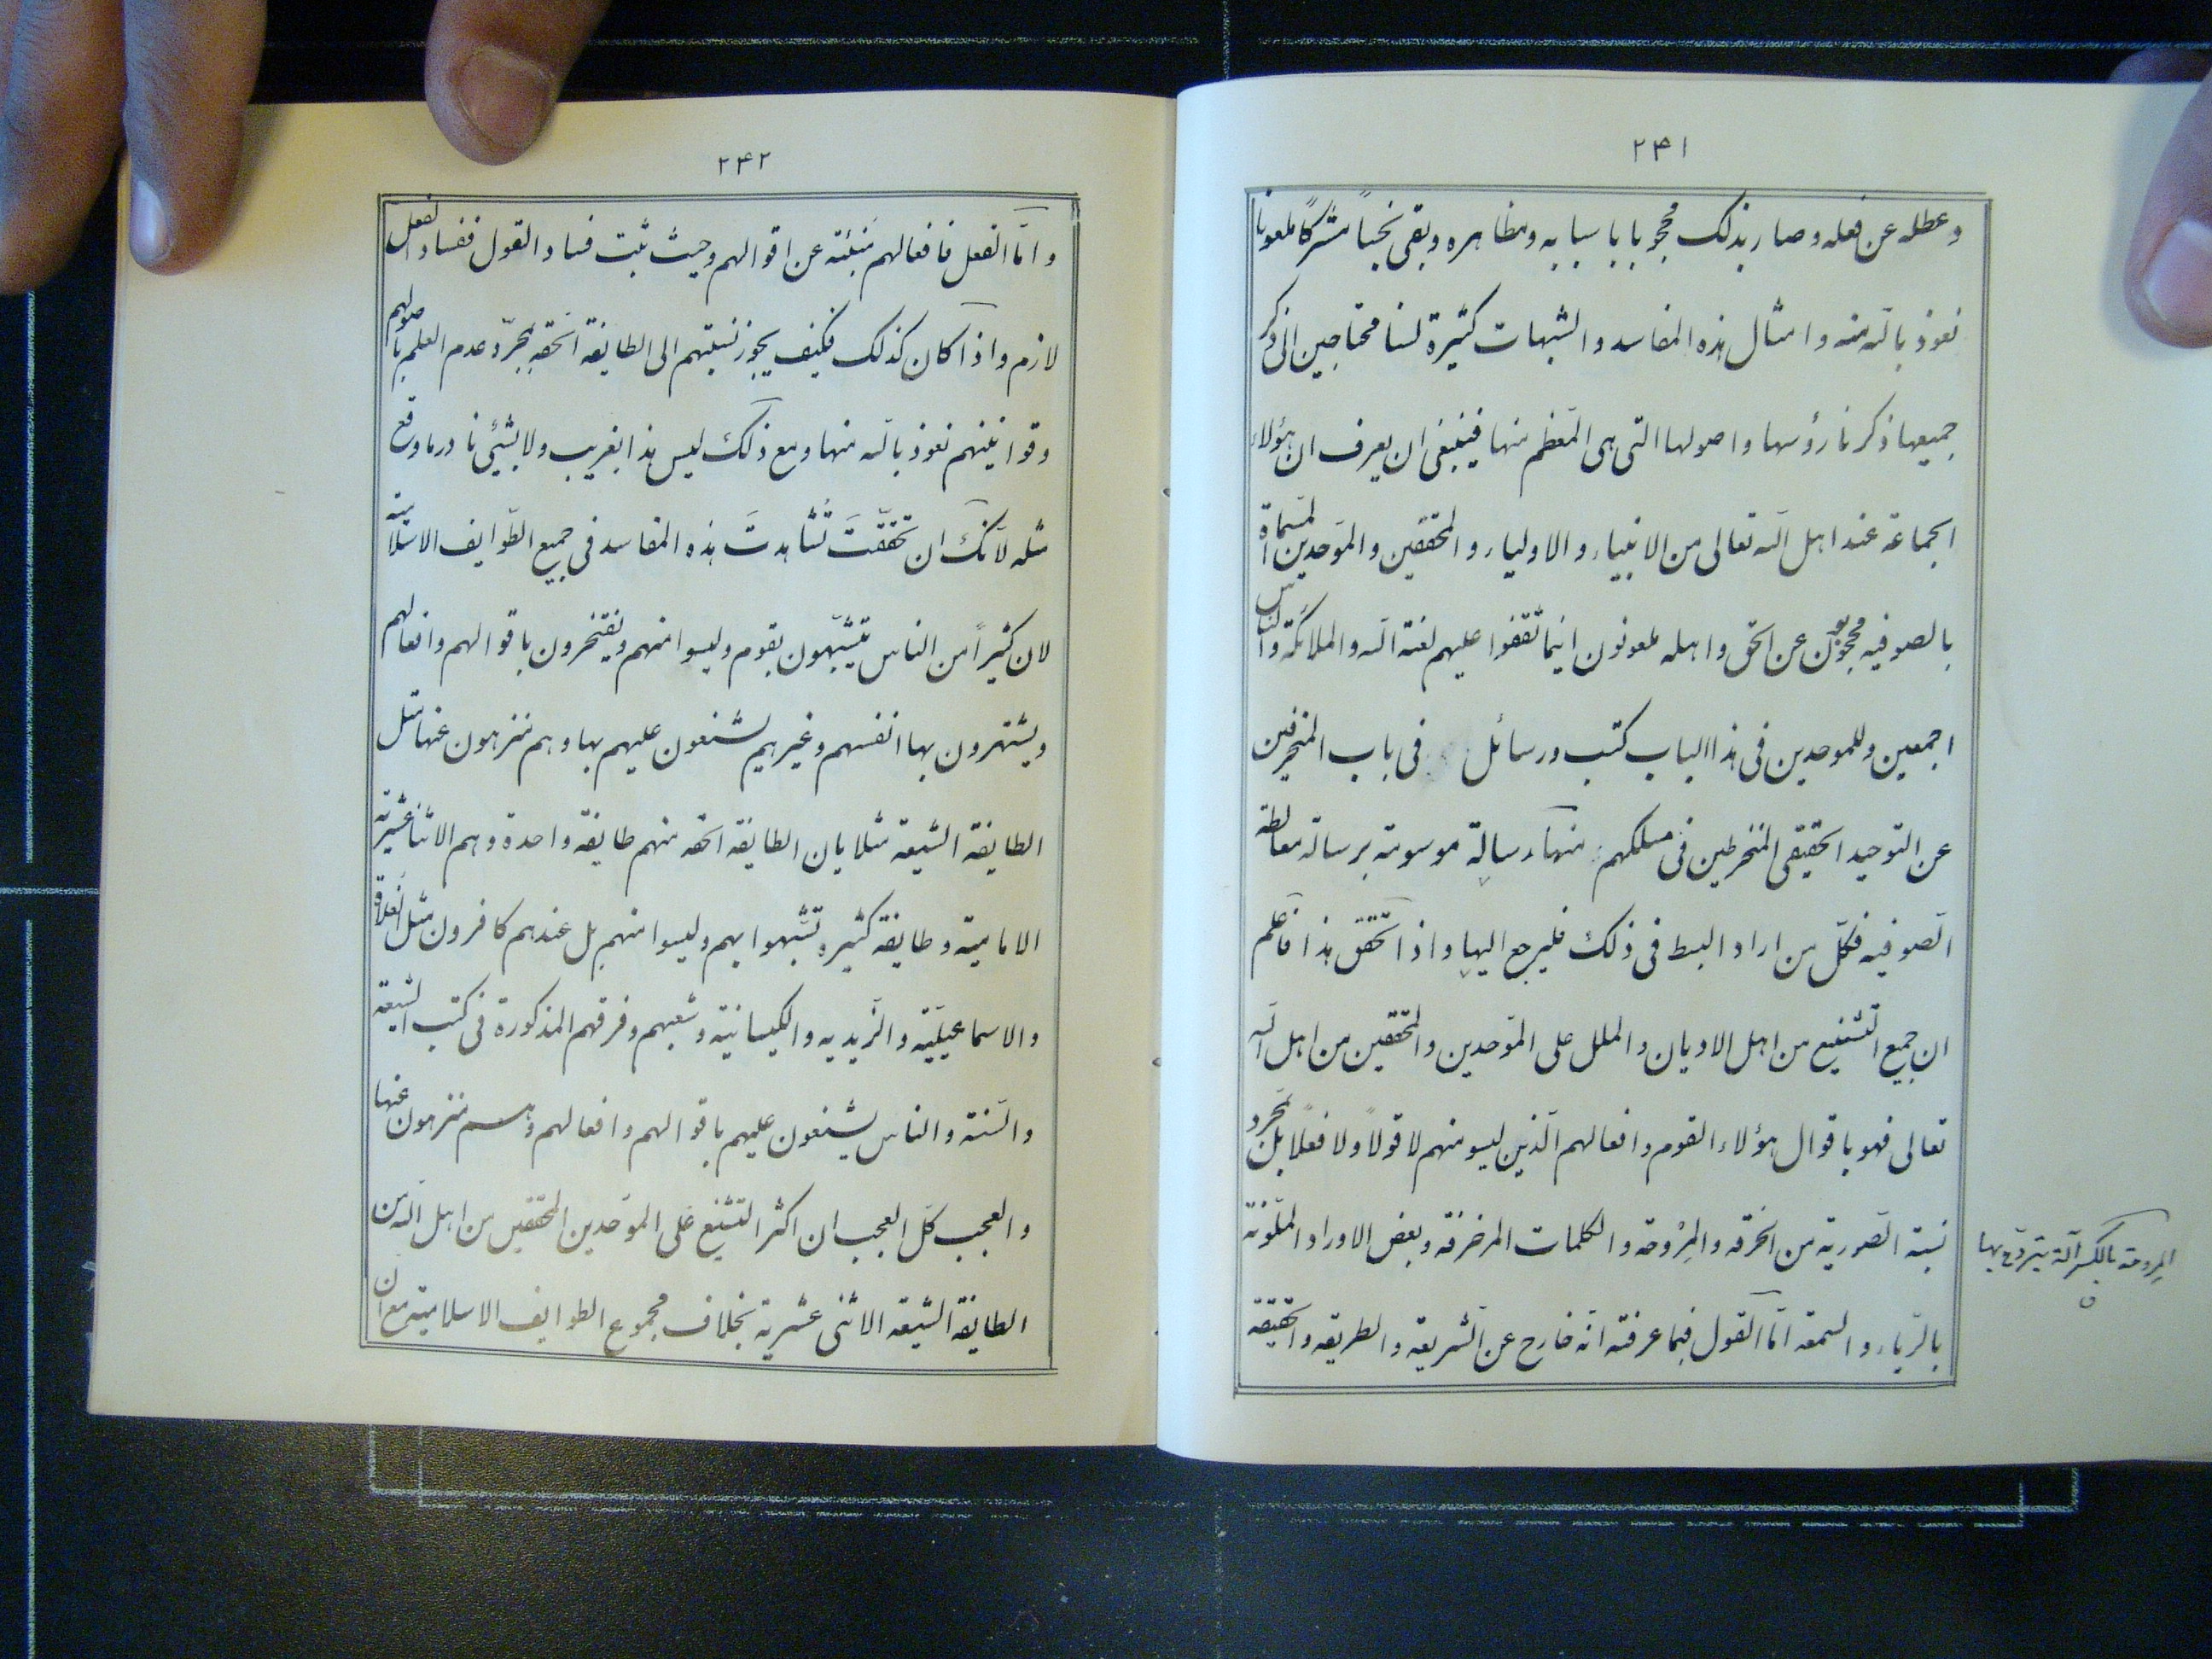 ۲۴۱
وعطله عن فعله وصار بذلك محجوبا باسبابه ومظاهره وبقى نجساً مشركاً ملعونا
نعوذ بالله منه وامثال هذه المفاسد والشبهات كثيرة لسنا محتاجين الى ذكر
جميعها ذكرنا رؤسها واصولها التى هى المعظم منها فينبغى ان يعرف ان هؤلاء
الجماعة عند اهل الله تعالى من الانبياء والاولياء والمحققين والموحدين المسماة
بالصوفيه محجوبون عن الحق واهله ملعونون اينما ثقفوا عليهم لعنة الله والملائكة والناس
اجمعين وللموحدين فى هذا الباب كتب ورسائل فى باب المنحرفين
عن التوحيد الحقيقى المنخرطين فى مسلكهم منها رسالة موسومة برسالة مغالطة
الصّوفيه فكلّ من اراد البسط فى ذلك فليرجع اليها واذا تحقق هذا فاعلم
ان جميع التشنيع من اهل الاديان والملل على الموّحدين والمحققين من اهل الله
تعالى فهو باقوال هؤلاء القوم وافعالهم الّذين ليسو منهم لا قولاً ولا فعلاً بل بمجرد
نسبة الصّورية من الخرقه والمِرْوحه والكلمات المزخرفة وبعض الاوراد الملّونة
بالرّياء والسمعة امّا القول فبما عرفته انه خارج عن الشّريعة والطريقة والحقيقة
المِروحة بالكسر آلة يتروّح بها
۲۴۲
وامّا الفعل فافعالهم منبئة عن اقوالهم وحيث ثبت فساد القول ففساد الفعل
لازم واذا كان كذلك فكيف يجوز نسبتهم الى الطايفة الحقه بمجرّد عدم العلم باصولهم
وقوانينهم نعوذ بالله منها ومع ذلك ليس هذا بغريب ولا بشيئى نادر ما وقع
مثله لانّك ان تحققّتَ تُشاهدتَ هذه المفاسد فى جميع الطّوايف الاسلامية
لان كثيراً من الناس يتشبّهون بقوم وليسوا منهم ويفتخرون باقوالهم وافعالهم
ويشتهرون بها انفسهم وغيرهم يشنعون عليهم بها وهم منزهون عنها مثل
الطايفة الشيعة مثلا فان الطايفة الحقه منهم طايفة واحدة وهم الاثنا عشرية
الامامية وطايفة كثيره تشّبهوا بهم وليسوا منهم بل عندهم كافرون مثل الغلاة
والاسماعيليّة والزّيديه والكيسانية وشعبهم وفرقهم المذكورة فى كتب الشيعة
والسّنة والناس يشنعون عليهم باقوالهم وافعالهم وهم منزهون عنها
والعجب كلّ العجب ان اكثر التشنيع على الموّحدين المحققين من اهل الله من
الطايفة الشيعة الاثنى عشرية بخلاف مجموع الطوايف الاسلامية مع ان